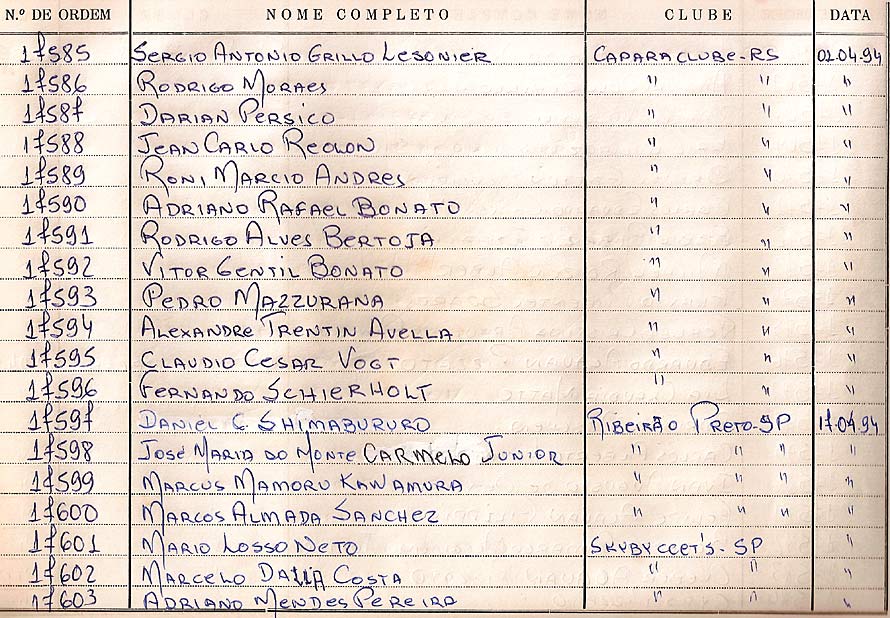 N.º DE ORDEM NOME COMPLETO CLUBE DATA
17585 SERGIO ANTONIO GRILLO LESONIER CAPARACLUBE-RS 02.04.94
17586 RODRIGO MORAES " " "
17587 DARIAN PERSICO " " "
17588 JEAN CARLO REOLON " " "
17589 RONI MARCIO ANDRES " " "
17590 ADRIANO RAFAEL BONATO " " "
17591 RODRIGO ALVES BERTOJA " " "
17592 VITOR GENTIL BONATO " " "
17593 PEDRO MAZZURANA " " "
17594 ALEXANDRE TRENTIN AVELLA " " "
17595 CLAUDIO CESAR VOGT " " "
17596 FERNANDO SCHIERHOLT " " "
17597 DANIEL C. SHIMABURURO RIBEIRÃO PRETO-SP 17.04.94
17598 JOSÉ MARIA DO MONTE CARMELO JUNIOR " " " "
17599 MARCUS MAMORU KAWAMURA " " " "
17600 MARCOS ALMADA SANCHEZ " " " "
17601 MARIO LOSSO NETO - SP "
17602 MARCELO DALLA COSTA " " "
17603 ADRIANO MENDES PEREIRA " " "